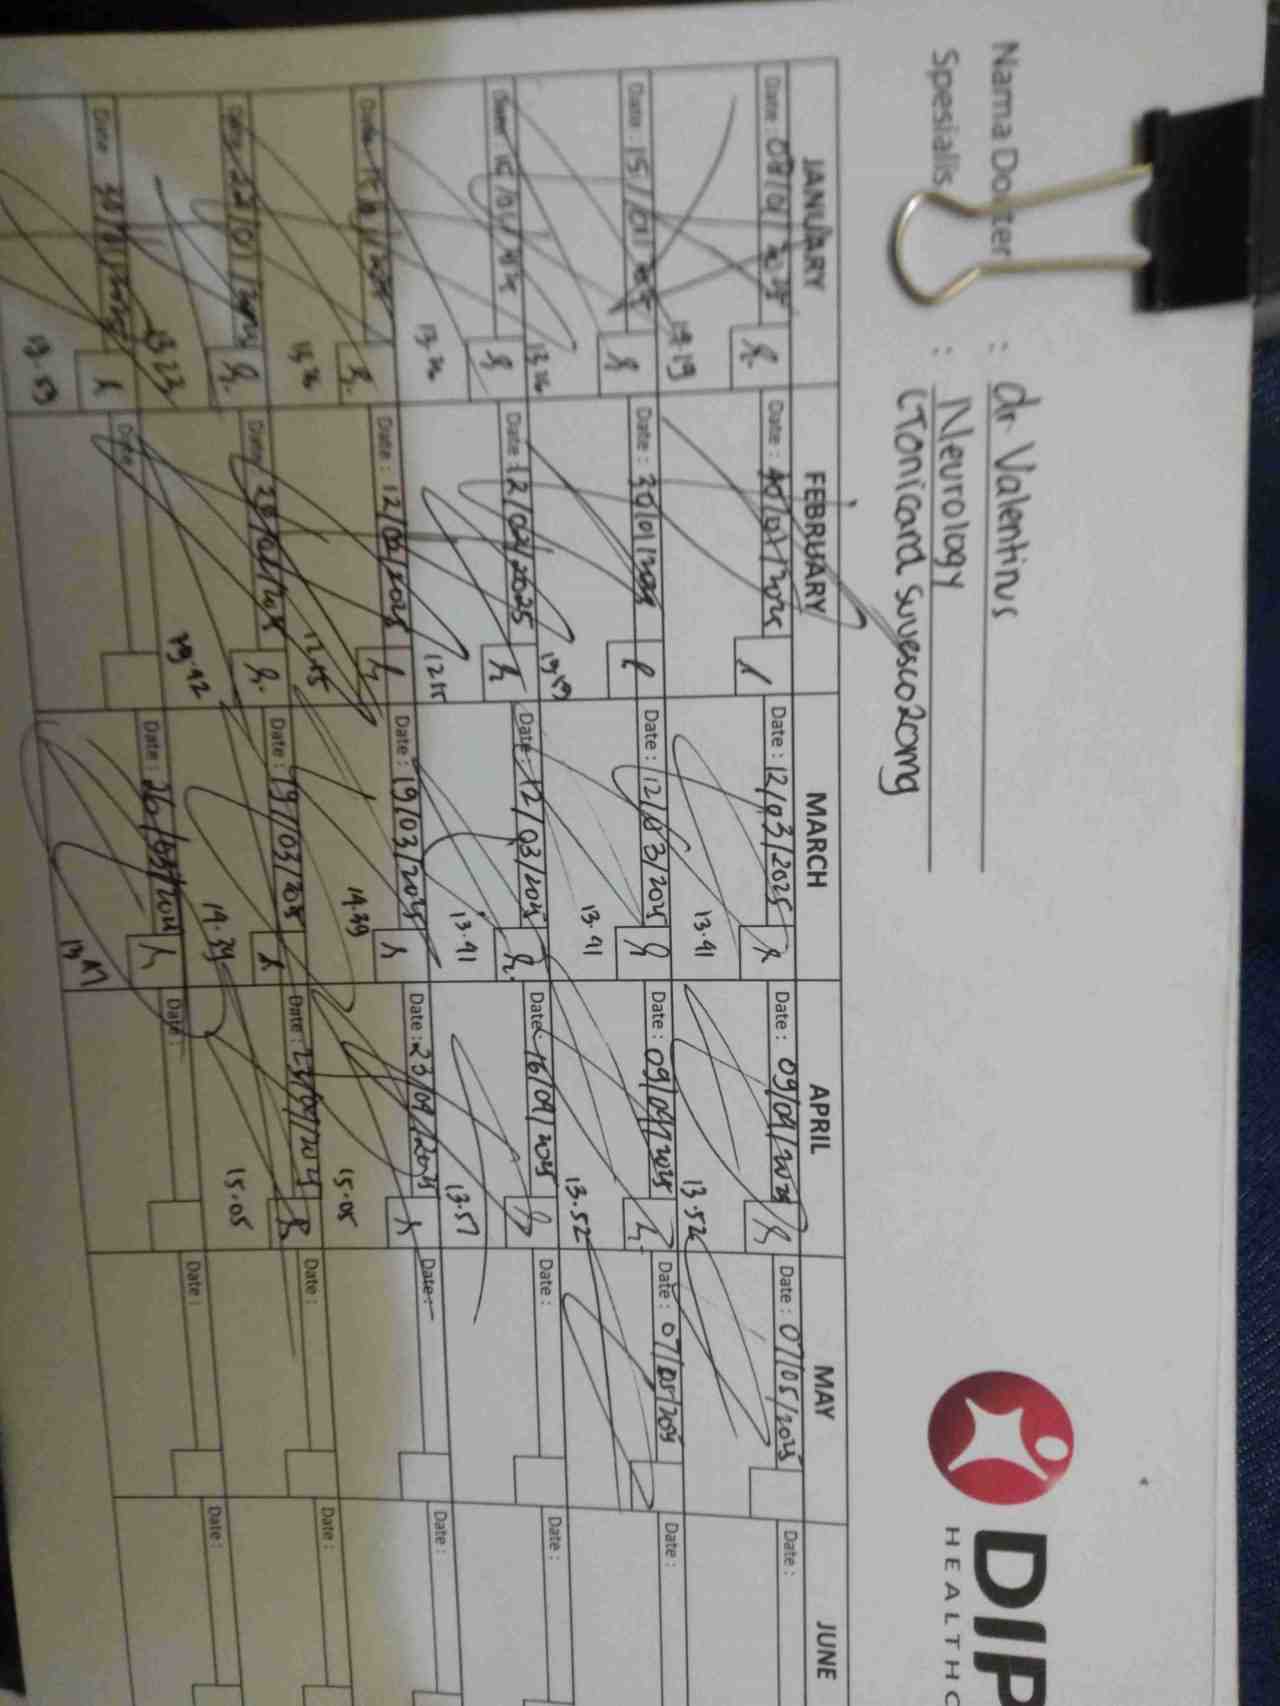 Nama Dokter : dr Valentinus
Spesialis : Neurology
(Tonicard suvesco 20mg
DIP
HEALTHC
JANUARY FEBRUARY MARCH APRIL MAY JUNE
Date: 08/01/2025 Date: Date: 12/03/2025 Date: 09/04/2025 Date: 07/05/2025 Date:
19.19 13.41 13.52
Date: 15/01/2025 Date: 30/01/2025 Date: 12/03/2025 Date: 09/04/2025 Date: 07/05/2025 Date:
13.26 19.59 13.41 13.52
Date: 15/01/2025 Date: 12/02/2025 Date: 12/03/2025 Date: 16/04/2025 Date: Date:
13.26 12.15 13.41 13.57
Date: 15/01/2025 Date: 12/02/2025 Date: 19/03/2025 Date: 23/04/2025 Date: Date:
13.26 12.15 14.39 15.05
Date: 22/01/2025 Date: Date: 19/03/2025 Date: 23/04/2025 Date: Date:
13.23 19.42 14.39 15.05
Date: 30/01/2025 Date: Date: 26/03/2025 Date: Date: Date:
19.59 13.47